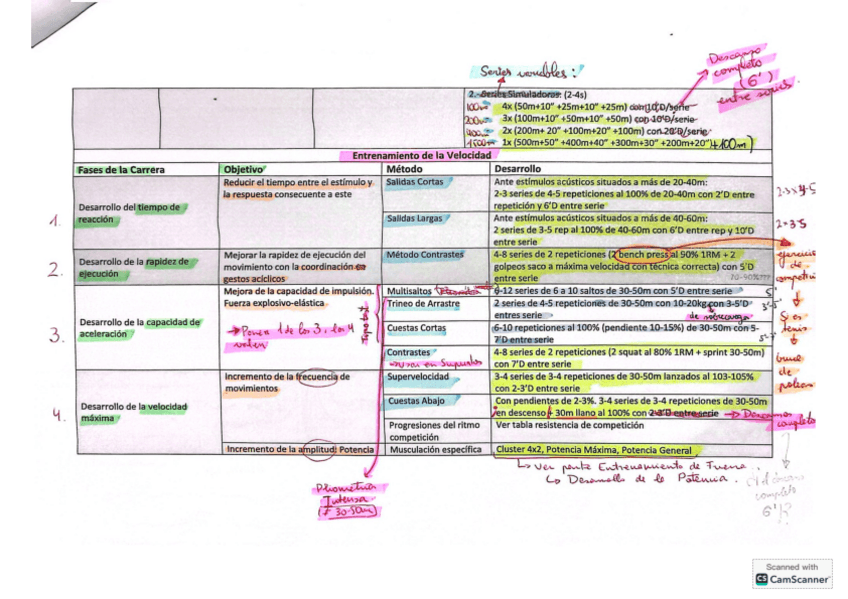 Series variables:
Descanso completo (6') entre series.
2. Series Simuladoras: (2-4s)
100m 4x (50m+10" +25m+10" +25m) con 10'D/serie
200m 3x (100m+10" +50m+10" +50m) con 10'D/serie
400m 2x (200m+ 20" +100m+20" +100m) con 20'D/serie
1500m 1x (500m+50" +400m+40" +300m+30" +200m+20" +100m)
Entrenamiento de la Velocidad
Fases de la Carrera Objetivo Método Desarrollo
1.
Desarrollo del tiempo de
reacción
Reducir el tiempo entre el estímulo y
la respuesta consecuente a este
Salidas Cortas
Ante estímulos acústicos situados a más de 20-40m:
2-3 series de 4-5 repeticiones al 100% de 20-40m con 2'D entre
repetición y 6'D entre serie
2-3x4-5
Salidas Largas
Ante estímulos acústicos situados a más de 40-60m:
2 series de 3-5 rep al 100% de 40-60m con 6'D entre rep y 10'D
entre serie
2x3-5
2.
Desarrollo de la rapidez de
ejecución
Mejorar la rapidez de ejecución del
movimiento con la coordinación en
gestos acíclicos
Método Contrastes
4-8 series de 2 repeticiones (2 bench press al 90% 1RM + 2
golpeos saco a máxima velocidad con técnica correcta) con 5'D
entre serie
ejercicio
de
3.
Desarrollo de la capacidad de
aceleración
Mejora de la capacidad de impulsión.
Fuerza explosivo-elástica.
→ Poner 1 de los 3, los 4
valen
Multisaltos
6-12 series de 6 a 10 saltos de 30-50m con 5'D entre serie
5'
Trineo de Arrastre
2 series de 4-5 repeticiones de 30-50m con 10-20kg con 3-5'D
entres serie
de sobrecarga
3'-5'
Cuestas Cortas
6-10 repeticiones al 100% (pendiente 10-15%) de 30-50m con 5-
7'D entre serie
Contrastes
4-8 series de 2 repeticiones (2 squat al 80% 1RM + sprint 30-50m)
con 7'D entre serie
4.
Desarrollo de la velocidad
máxima
Incremento de la frecuencia de
movimientos
Supervelocidad
3-4 series de 3-4 repeticiones de 30-50m lanzados al 103-105%
con 2-3'D entre serie
Cuestas Abajo
Con pendientes de 2-3%. 3-4 series de 3-4 repeticiones de 30-50m
en descenso + 30m llano al 100% con 2-3'D entre serie → Descanso
completo
Progresiones del ritmo
competición
Ver tabla resistencia de competición
Incremento de la amplitud: Potencia
Musculación específica
Cluster 4x2, Potencia Máxima, Potencia General.
↳ Ver parte Entrenamiento de Fuerza.
↳ Desarrollo de la Potencia.
Pliometría
Intensa
(+ 30-50m)
completo
6')?
Scanned with
CS CamScanner